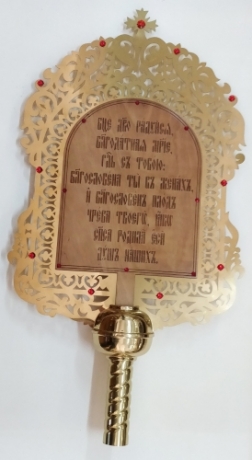 Бц͠е дв҃о радꙋйсѧ,
бл҃годатнаѧ мр҃іе,
гд҃ь съ тобою:
бл҃гословена ты въ женахъ,
и бл҃гословенъ плодъ
чрева твоегѡ, ꙗкѡ
сп҃са родила еси
дꙋшъ нашихъ.